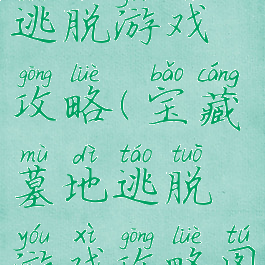 逃脱游戏
gōng lüè bǎo cáng
攻略(宝藏
mù dì táo tuō
墓地逃脱
yóu xì gōng lüè tú
游戏攻略图